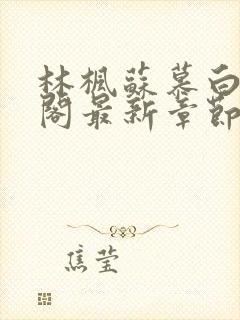 林楓蘇慕白
閣最新章節
焦莹